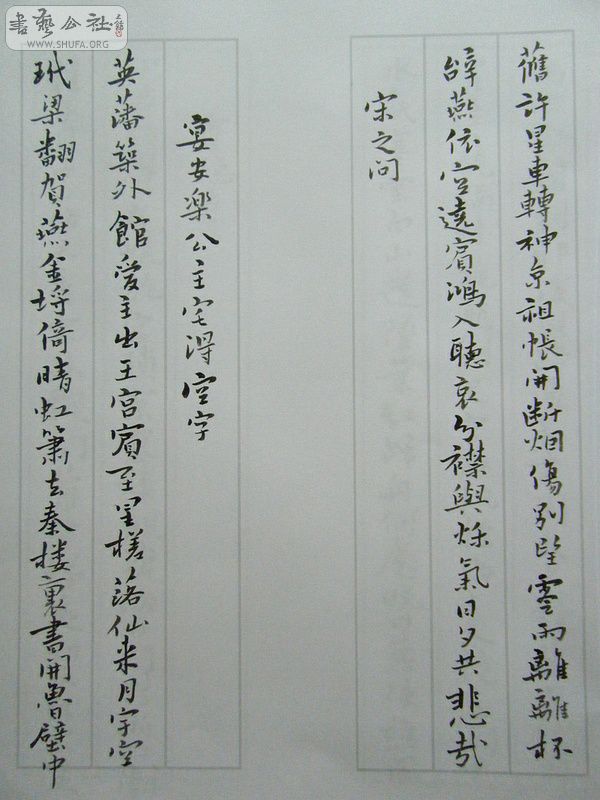 書藝公社
WWW.SHUFA.ORG
舊許星車轉神京祖帳開断烟傷别望零雨離離杯
辭燕依空遶賓鴻入聽哀分襟與爍氣日夕共悲哉
宋之问
宴安樂公主宅得空字
英藩築外館愛主出王宫賓至星槎落仙来月宇空
玳梁翻賀燕金埒倚晴虹簫去秦楼裏書開魯壁中